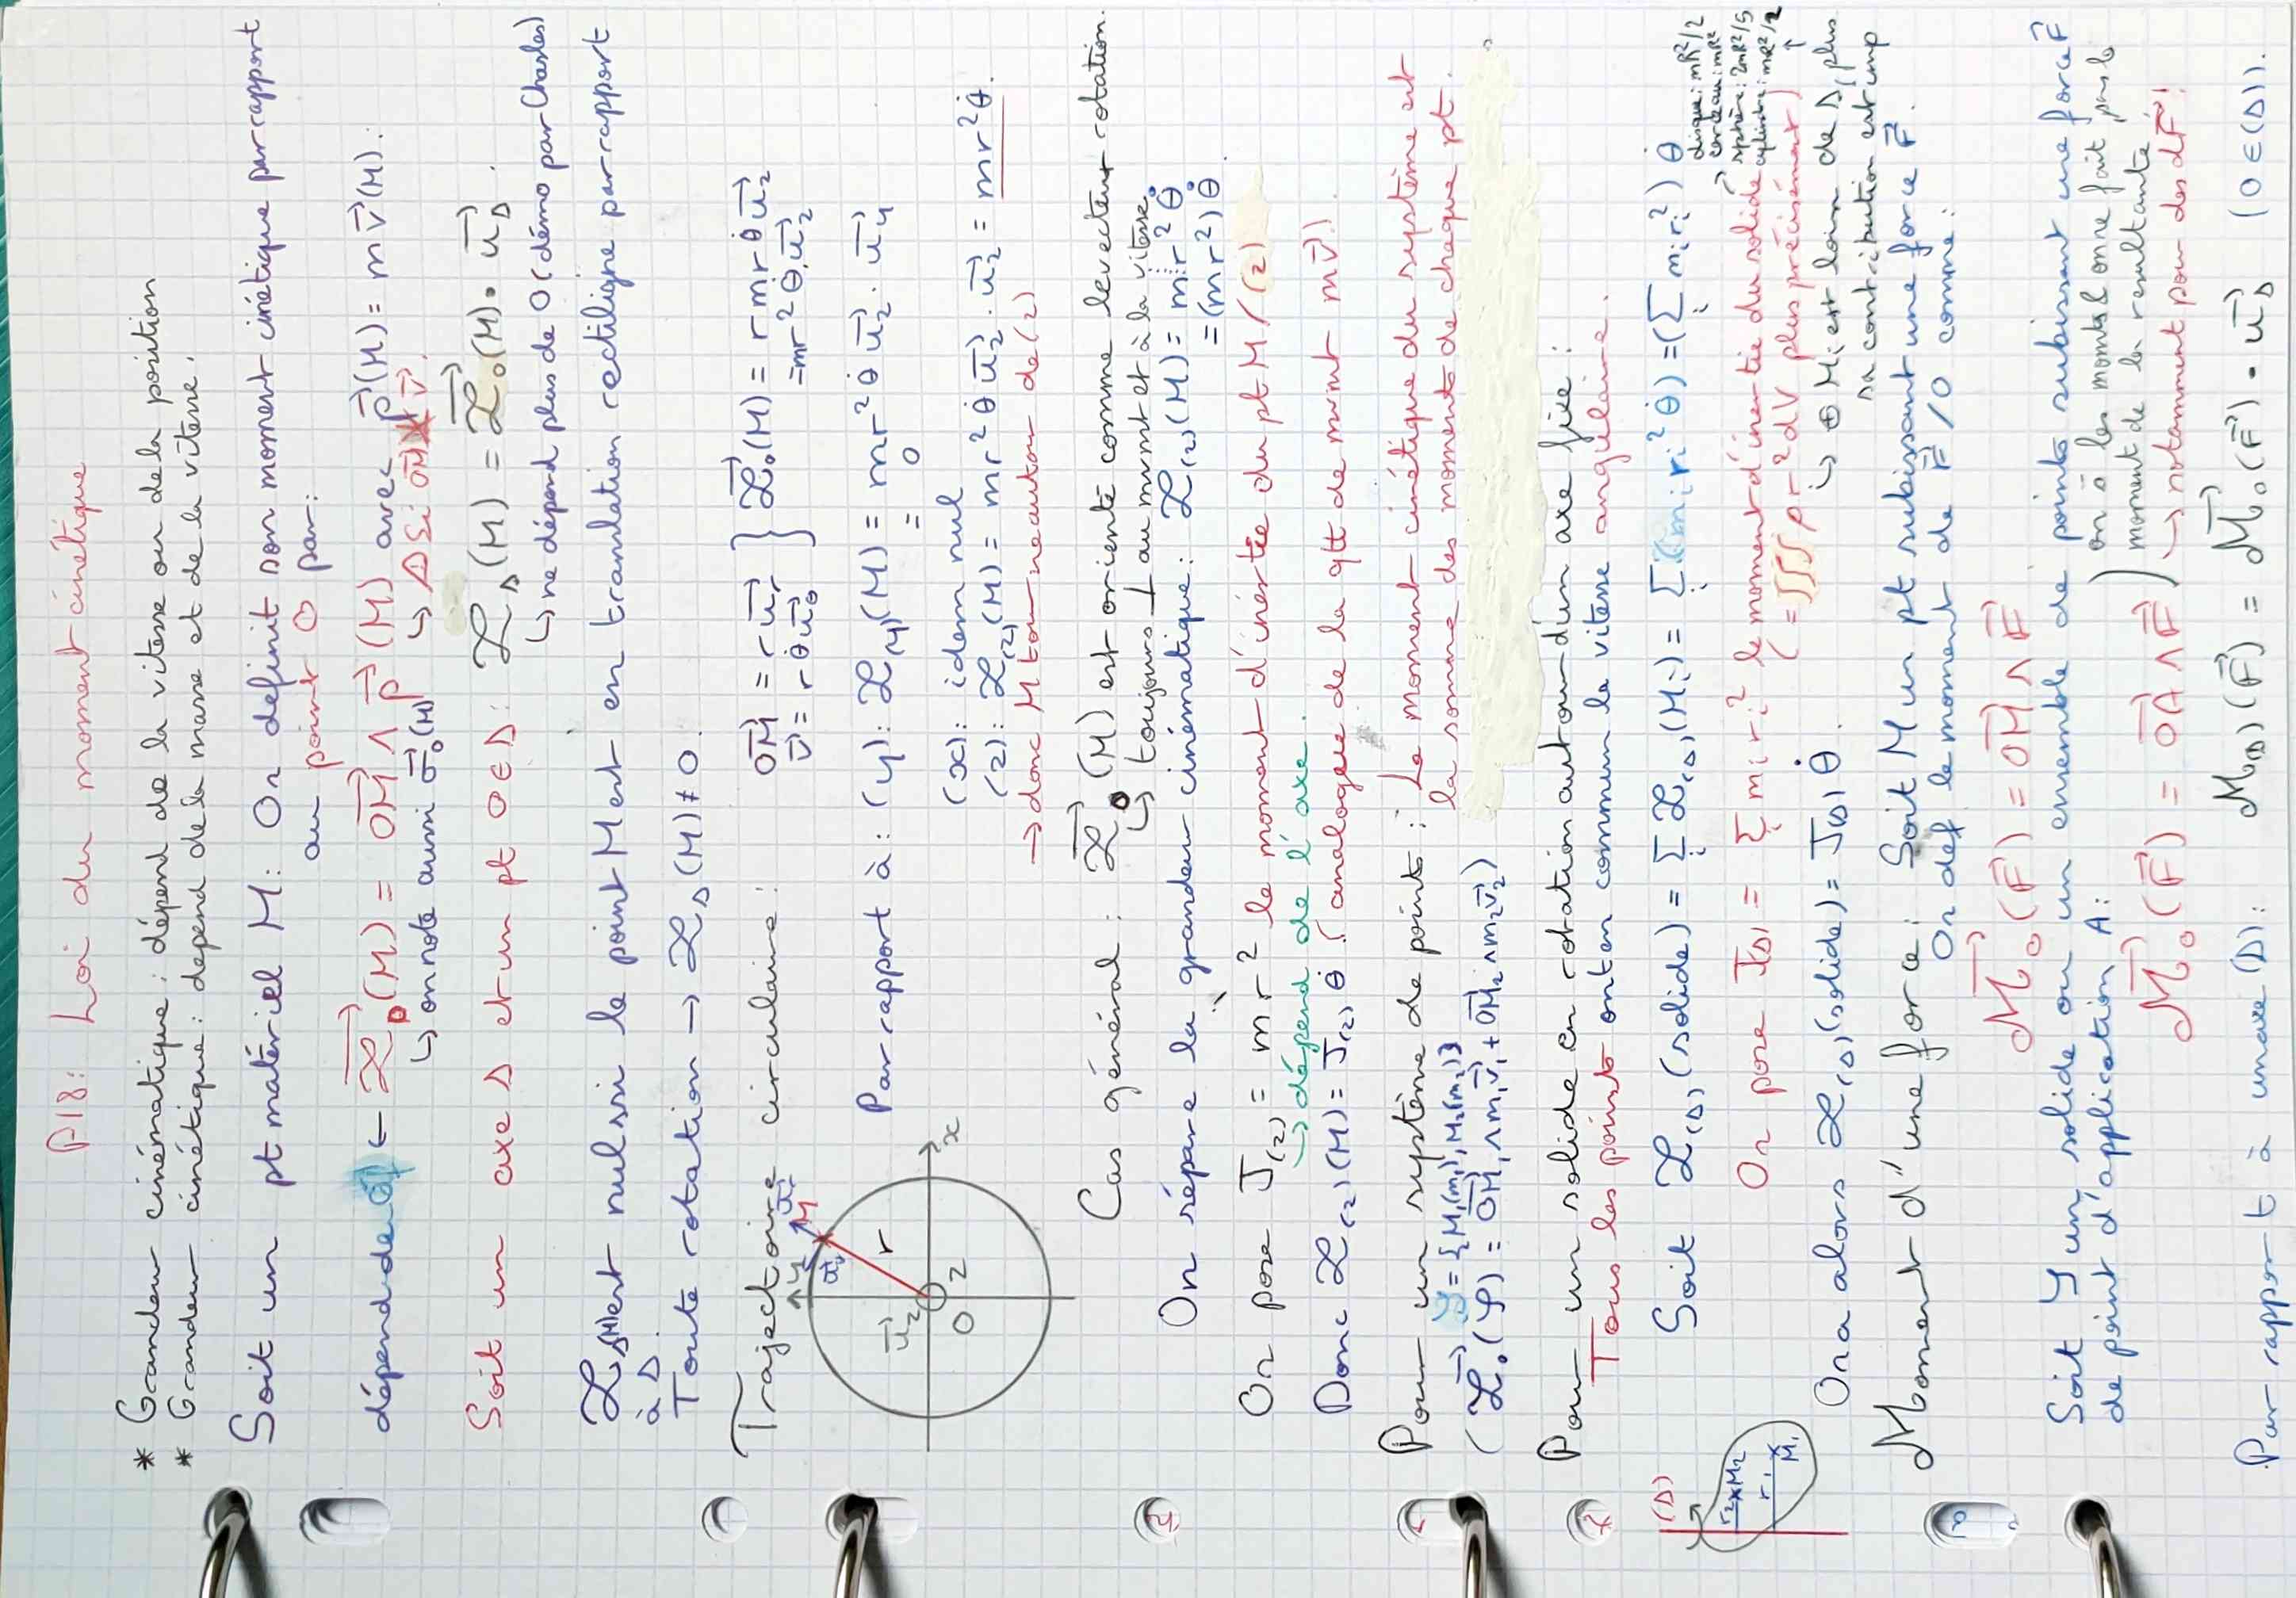 P18: Loi du moment cinétique
* Grandeur cinématique : dépend de la vitesse ou de la position
* Grandeur cinétique : depend de la masse et de la vitesse.
Soit un pt matériel M : On definit son moment cinétique par rapport
au point O par :
dépend de O ← ℒ⃗₀(M) = OM⃗ ∧ p⃗(M) avec p⃗(M) = m v⃗(M).
↳ on note aussi σ⃗₀(M)
↳ Δ Si OM⃗ ∦ v⃗.
Soit un axe Δ et un pt O ∈ Δ : ℒ_Δ(M) = ℒ⃗₀(M) • u⃗_Δ.
↳ ne dépend plus de O (démo par Chasles)
ℒ_Δ(M) est nul ssi le point M est en translation rectiligne par rapport
à Δ.
Toute rotation → ℒ_Δ(M) ≠ 0.
Trajectoire circulaire :
OM⃗ = r u⃗r
v⃗ = r θ̇ u⃗θ
} ℒ⃗₀(M) = r m r θ̇ u⃗z
= mr² θ̇ u⃗z
y
u⃗r
M
r
u⃗z
O
z
x
Par rapport à : (y) : ℒ(y)(M) = mr² θ̇ u⃗z . u⃗y
= 0
(x) : idem nul
(z) : ℒ(z)(M) = mr² θ̇ u⃗z . u⃗z = mr² θ̇.
→ donc M tourne autour de (z)
Cas général : ℒ⃗₀(M) est orienté comme le vecteur rotation.
↳ toujours ⊥ au mvmt et à la vitesse.
On sépare la grandeur cinématique : ℒ(z)(M) = m r² θ̇
= (mr²) θ̇.
On pose J(z) = mr² le moment d'inértie du pt M / (z)
↳ dépend de l'axe.
Donc ℒ(z)(M) = J(z) θ̇ (analogue de la qtt de mvmt mv⃗)
Pour un système de points : Le moment cinétique du système est
la somme des moments de chaque pt.
𝒮 = {M₁(m₁), M₂(m₂)}
(ℒ⃗₀(𝒮) = OM⃗₁ ∧ m₁v⃗₁ + OM⃗₂ ∧ m₂v⃗₂)
Pour un solide en rotation autour d'un axe fixe :
Tous les points ont en commun la vitesse angulaire.
(Δ)
r₂ M₂
r₁ M₁
Soit ℒ(Δ)(solide) = Σᵢ ℒ(Δ)(Mᵢ) = Σᵢ (mᵢ rᵢ² θ̇) = (Σᵢ mᵢ rᵢ²) θ̇
On pose J(Δ) = Σᵢ mᵢ rᵢ² le moment d'inertie du solide
(= ∭ ρ r² dV plus précisément)
disque : mR²/2
cerceau : mR²
sphère : 2mR²/5
cylindre : mR²/2
↳ ⊕ Mᵢ est loin de Δ, plus
sa contribution est imp
On a alors ℒ(Δ)(solide) = J(Δ) θ̇.
Moment d'une force : Soit M un pt subissant une force F⃗.
On def le moment de F⃗ / O comme :
ℳ⃗₀(F⃗) = OM⃗ ∧ F⃗
Soit 𝒮 un solide ou un ensemble de points subissant une force F⃗
de point d'application A :
ℳ⃗₀(F⃗) = OA⃗ ∧ F⃗
) on à les moments & on ne fait pas le
moment de la resultante
↳ notamment pour des dF⃗ !
Par rapport à un axe (Δ) : ℳ(Δ)(F⃗) = ℳ⃗₀(F⃗) • u⃗_Δ (O ∈ (Δ)).